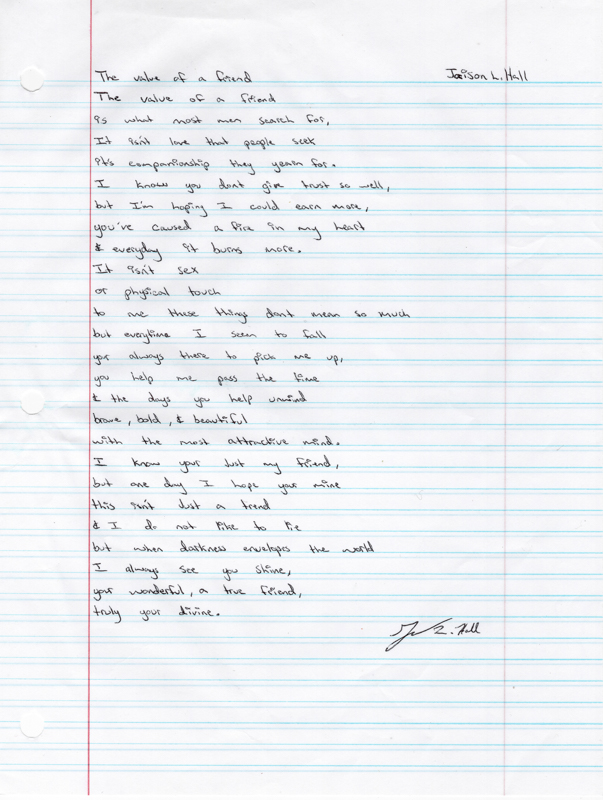 The value of a friend Jaison L. Hall
The value of a friend
is what most men search for,
It isn't love that people seek
it's companionship they yearn for.
I know you dont give trust so well,
but I'm hoping I could earn more,
you've caused a fire in my heart
& everyday it burns more.
It isn't sex
or physical touch
to me these things dont mean so much
but everytime I seem to fall
your always there to pick me up,
you help me pass the time
& the days you help unwind
brave, bold, & beautiful
with the most attractive mind.
I know your Just my friend,
but one day I hope your mine
this isn't Just a trend
& I do not like to lie
but when darkness envelopes the world
I always see you shine,
your wonderful, a true friend,
truly your divine.
L. Hall